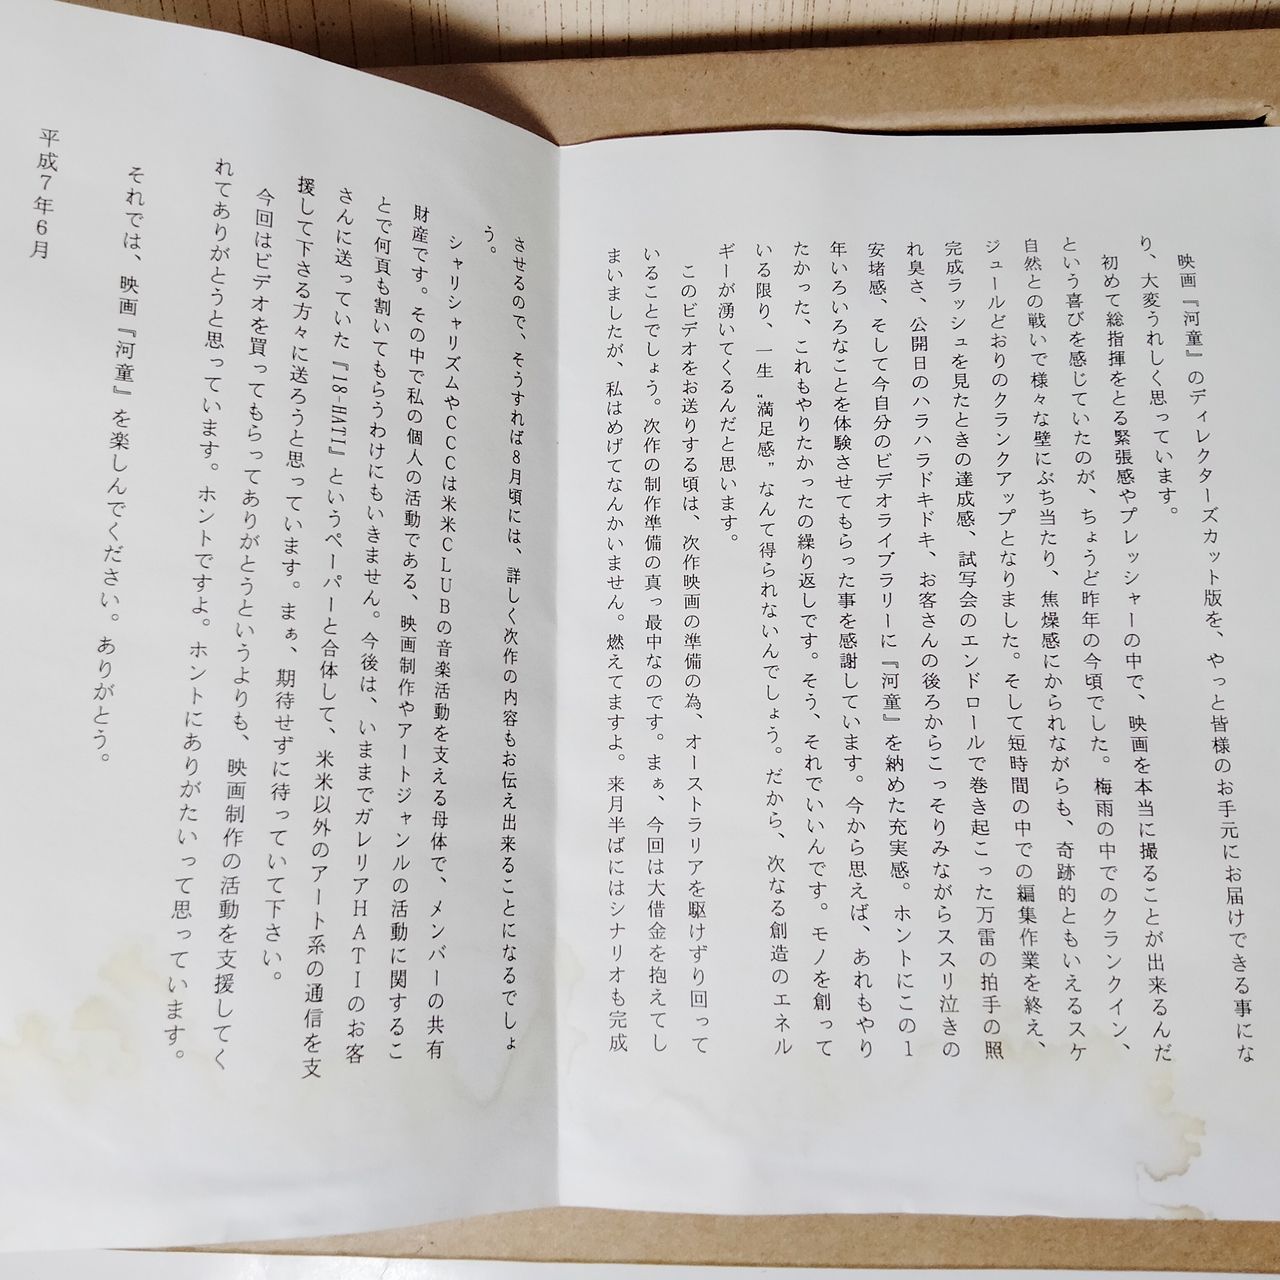 映画『河童』のディレクターズカット版を、やっと皆様のお手元にお届けできる事にな
り、大変うれしく思っています。
初めて総指揮をとる緊張感やプレッシャーの中で、映画を本当に撮ることが出来るんだ
という喜びを感じていたのが、ちょうど昨年の今頃でした。梅雨の中でのクランクイン、
自然との戦いで様々な壁にぶち当たり、焦燥感にかられながらも、奇跡的ともいえるスケ
ジュールどおりのクランクアップとなりました。そして短時間の中での編集作業を終え、
完成ラッシュを見たときの達成感、試写会のエンドロールで巻き起こった万雷の拍手の照
れ臭さ、公開日のハラハラドキドキ、お客さんの後ろからこっそりみながらススリ泣きの
安堵感、そして今自分のビデオライブラリーに『河童』を納めた充実感。ホントにこの1
年いろいろなことを体験させてもらった事を感謝しています。今から思えば、あれもやり
たかった、これもやりたかったの繰り返しです。そう、それでいいんです。モノを創って
いる限り、一生〝満足感〟なんて得られないんでしょう。だから、次なる創造のエネル
ギーが湧いてくるんだと思います。
このビデオをお送りする頃は、次作映画の準備の為、オーストラリアを駆けずり回って
いることでしょう。次作の制作準備の真っ最中なのです。まぁ、今回は大借金を抱えてし
まいましたが、私はめげてなんかいません。燃えてますよ。来月半ばにはシナリオも完成
させるので、そうすれば8月頃には、詳しく次作の内容もお伝え出来ることになるでしょ
う。
シャリシャリズムやCCCは米米CLUBの音楽活動を支える母体で、メンバーの共有
財産です。その中で私の個人の活動である、映画制作やアートジャンルの活動に関するこ
とで何頁も割いてもらうわけにもいきません。今後は、いままでガレリアHATIのお客
さんに送っていた『18-HATI』というペーパーと合体して、米米以外のアート系の通信を支
援して下さる方々に送ろうと思っています。まぁ、期待せずに待っていて下さい。
今回はビデオを買ってもらってありがとうというよりも、映画制作の活動を支援してく
れてありがとうと思っています。ホントですよ。ホントにありがたいって思っています。
それでは、映画『河童』を楽しんでください。ありがとう。
平成7年6月